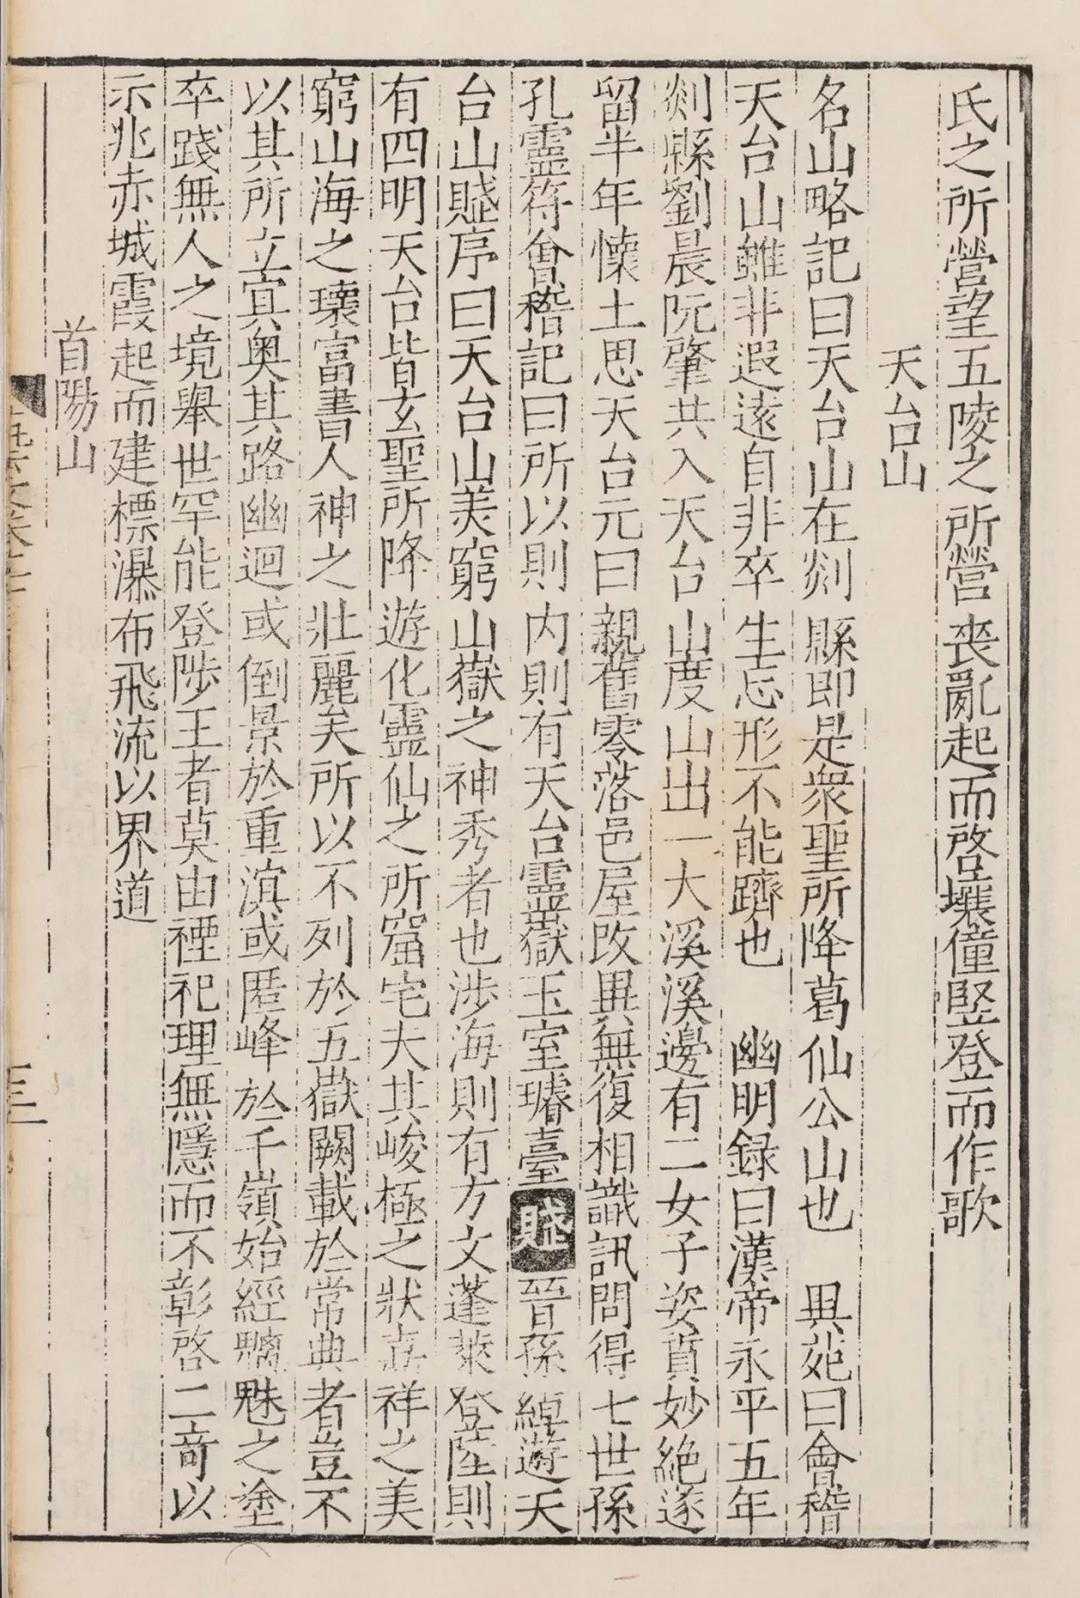 氏之所營望五陵之所營喪亂起而啓壤僮竪登而作歌
天台山
名山略記曰天台山在剡縣即是衆聖所降葛仙公山也 異苑曰會稽
天台山雖非遐遠自非卒生忘形不能躋也 幽明録曰漢帝永平五年
剡縣劉晨阮肇共入天台山度山出一大溪溪邊有二女子姿質妙絶遂
留半年懷土思天台元曰親舊零落邑屋改異無復相識訊問得七世孫
孔靈符會稽記曰所以則内則有天台靈嶽玉室璿臺賦晉孫綽遊天
台山賦序曰天台山美窮山嶽之神秀者也涉海則有方文蓬萊登陸則
有四明天台皆玄聖所降遊化靈仙之所窟宅夫其峻極之狀嘉祥之美
窮山海之瓌富書人神之壯麗矣所以不列於五嶽闕載於常典者豈不
以其所立㝠奥其路幽迴或倒景於重溟或匿峰於千嶺始經魑魅之塗
卒踐無人之境舉世罕能登陟王者莫由禋祀理無隱而不彰啓二竒以
示兆赤城霞起而建標瀑布飛流以界道
首陽山